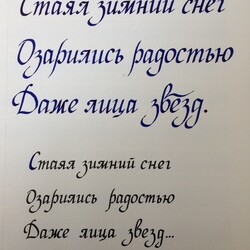 Стаял зимний снег
Озарились радостью
Даже лица звёзд.
Стаял зимний снег
Озарились радостью
Даже лица звезд...